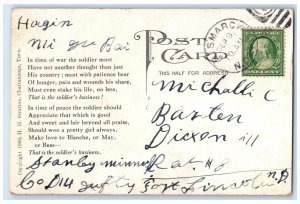 Hagin
POST CARD
BISMARCK
THIS HALF FOR ADDRESS
In time of war the soldier must
Have not another thought than just
His country; must with patience bear
Of hunger, pain and wounds his share,
Must even stake his life, no less,
That is the soldier's business!
In time of peace the soldier should
Appreciate that which is good
And sweet and hie beyond all praise,
Should woo a pretty girl always,
Make love to Blanche, or May,
or Bess—
That is the soldier's business.
Copyright 1909, H. H. Stratton, Chattanooga, Tenn.
Michalle C
Barten
Dixon ill
Stanley
Co
Fort Lincoln
N.D